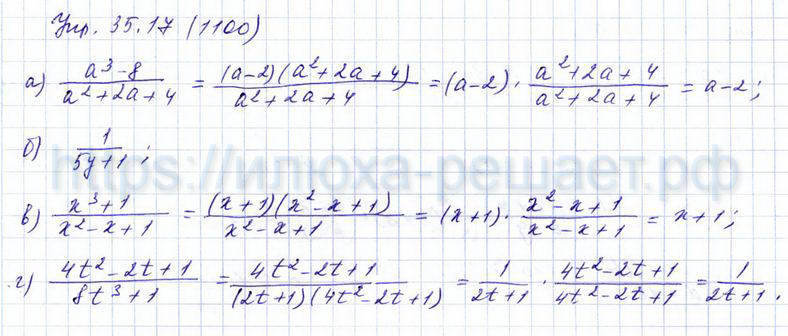 Упр. 35.17 (1100)
а) \frac{a^3-8}{a^2+2a+4} = \frac{(a-2)(a^2+2a+4)}{a^2+2a+4} = (a-2) \cdot \frac{a^2+2a+4}{a^2+2a+4} = a-2;
б) \frac{1}{5y+1};
https://илюха-решает.рф
в) \frac{x^3+1}{x^2-x+1} = \frac{(x+1)(x^2-x+1)}{x^2-x+1} = (x+1) \cdot \frac{x^2-x+1}{x^2-x+1} = x+1;
г) \frac{4t^2-2t+1}{8t^3+1} = \frac{4t^2-2t+1}{(2t+1)(4t^2-2t+1)} = \frac{1}{2t+1} \cdot \frac{4t^2-2t+1}{4t^2-2t+1} = \frac{1}{2t+1}.